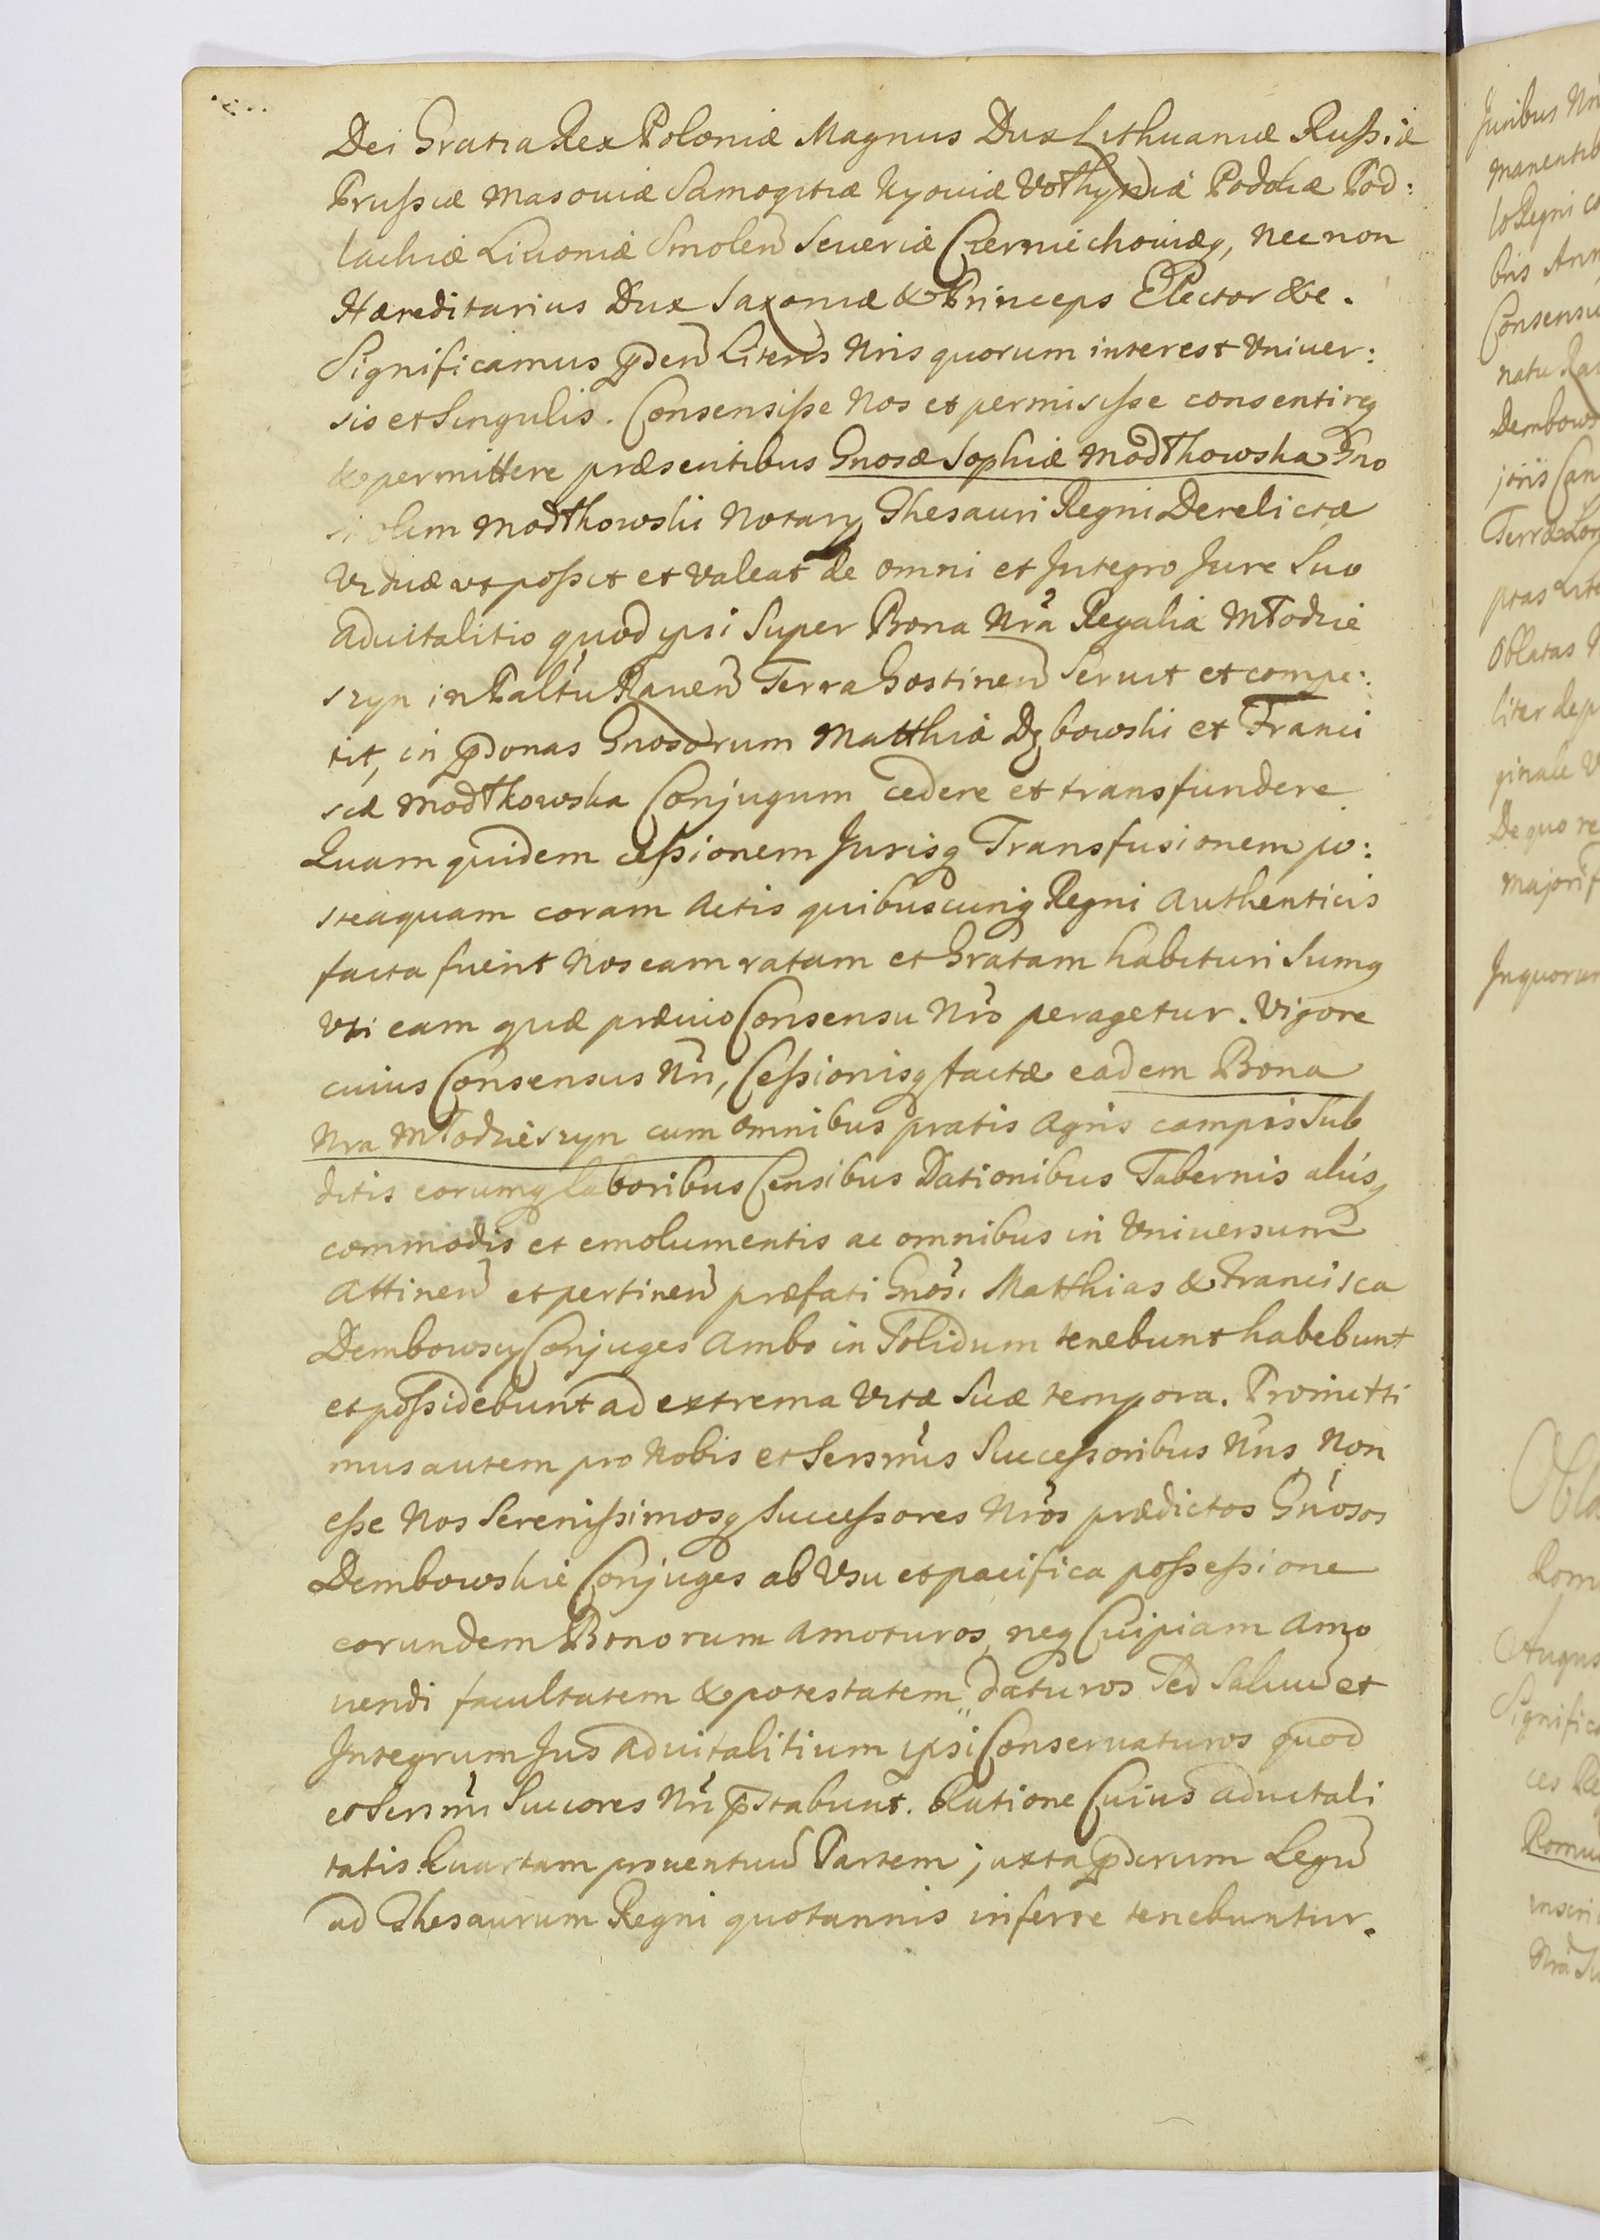 Dei Gratia Rex Poloniæ Magnus Dux Lithuaniæ Russiæ
Prussiæ Masoviæ Samogitiæ Kyoviæ Vołhyniæ Podoliæ Pod:
lachiæ Livoniæ Smolen Severiæ Czerniechoviæq, nec non
Hæreditarius Dux Saxoniæ & Princeps Elector &c.
Significamus pnden Literis Nris quorum interest Vniver:
sis et Singulis. Consensisse Nos et permisisse consentireq
& permittere præsentibus Gnosæ Sophiæ Modłkowska Gno
si olim Modłkowski Notary Thesauri Regni Derelictæ
Viduæ vt possit et valeat de omni et Integro Jure Suo
advitalitio quod ipsi Super Bona Nra Regalia Młodzie
szyn in Paltu Raven Terra Gostinen Servit et compe:
tit, in psonas Gnosorum Matthiæ Dębowski et Franci
scæ Modłkowska Conjugum cedere et transfundere
Quam quidem cessionem Jurisq Transfusionem po:
steaquam coram Actis quibuscunq Regni Authenticis
facta fuerit Nos eam ratam et Gratam habituri Sumq
Vti eam quæ prævio Consensu Nro peragetur. Vigore
cuius Consensus Nri, Cessionisq factæ eadem Bona
Nra Młodzieszyn cum omnibus pratis Agris campis Sub
ditis eorumq laboribus Censibus Dationibus Tabernis aliisq
commodis et emolumentis ac omnibus in Vniversum
Attinen et pertinen præfati Gnosi Matthias & Francisca
Dembowscy Conjuges Ambo in Solidum tenebunt habebunt
et possidebunt ad extrema Vitæ Suæ tempora. Promitti
mus autem pro Nobis et Sersmis Successoribus Nris Non
esse Nos Serenissimosq Successores Nros prædictos Gnosos
Dembowskie Conjuges ab Vsu et pacifica possessione
eorundem Bonorum Amoturos, neq Cuipiam Amo
vendi facultatem & potestatem daturos Sed Salvu et
Integrum Jus advitalitium ipsi Conservaturos quod
et Sersmi Succores Nri pstabunt. Ratione Cuius advitali
tatis Quartam proventuu Partem juxta pscrum Legu
ad Thesaurum Regni quotannis inferre tenebuntur.